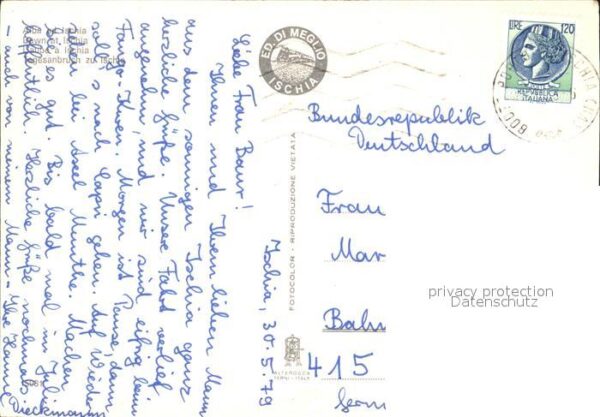 Alba ad Ischia
Dawn at Ischia
L'aube à Ischia
Tagesanbruch zu Ischia
ED. DI MEGLIO
ISCHIA
Ischia, 30.5.79
Liebe Frau Baur!
Ihnen und Ihrem lieben Mann
aus dem sonnigen Ischia ganz
herzliche Grüße. Unsere Fahrt verlief
angenehm, und wir sind eifrig beim
Fango-Kuren. Morgen ist Pause, dann
soll's nach Capri gehen. Auf Wieder-
sehen bei Axel Munthe. Machen
Sie es gut. Bis bald mal im Juli
hoffentlich. Herzliche Grüße nochmals
- auch von meinem Mann - Ihre Hanne
Dieckmann
FOTOCOLOR - RIPRODUZIONE VIETATA
ALTEROCCA
TERNI - ITALIA
LIRE 120
REPUBBLICA
ITALIANA
Bundesrepublik
Deutschland
Frau
Mar
Bahn
415
privacy protection
Datenschutz